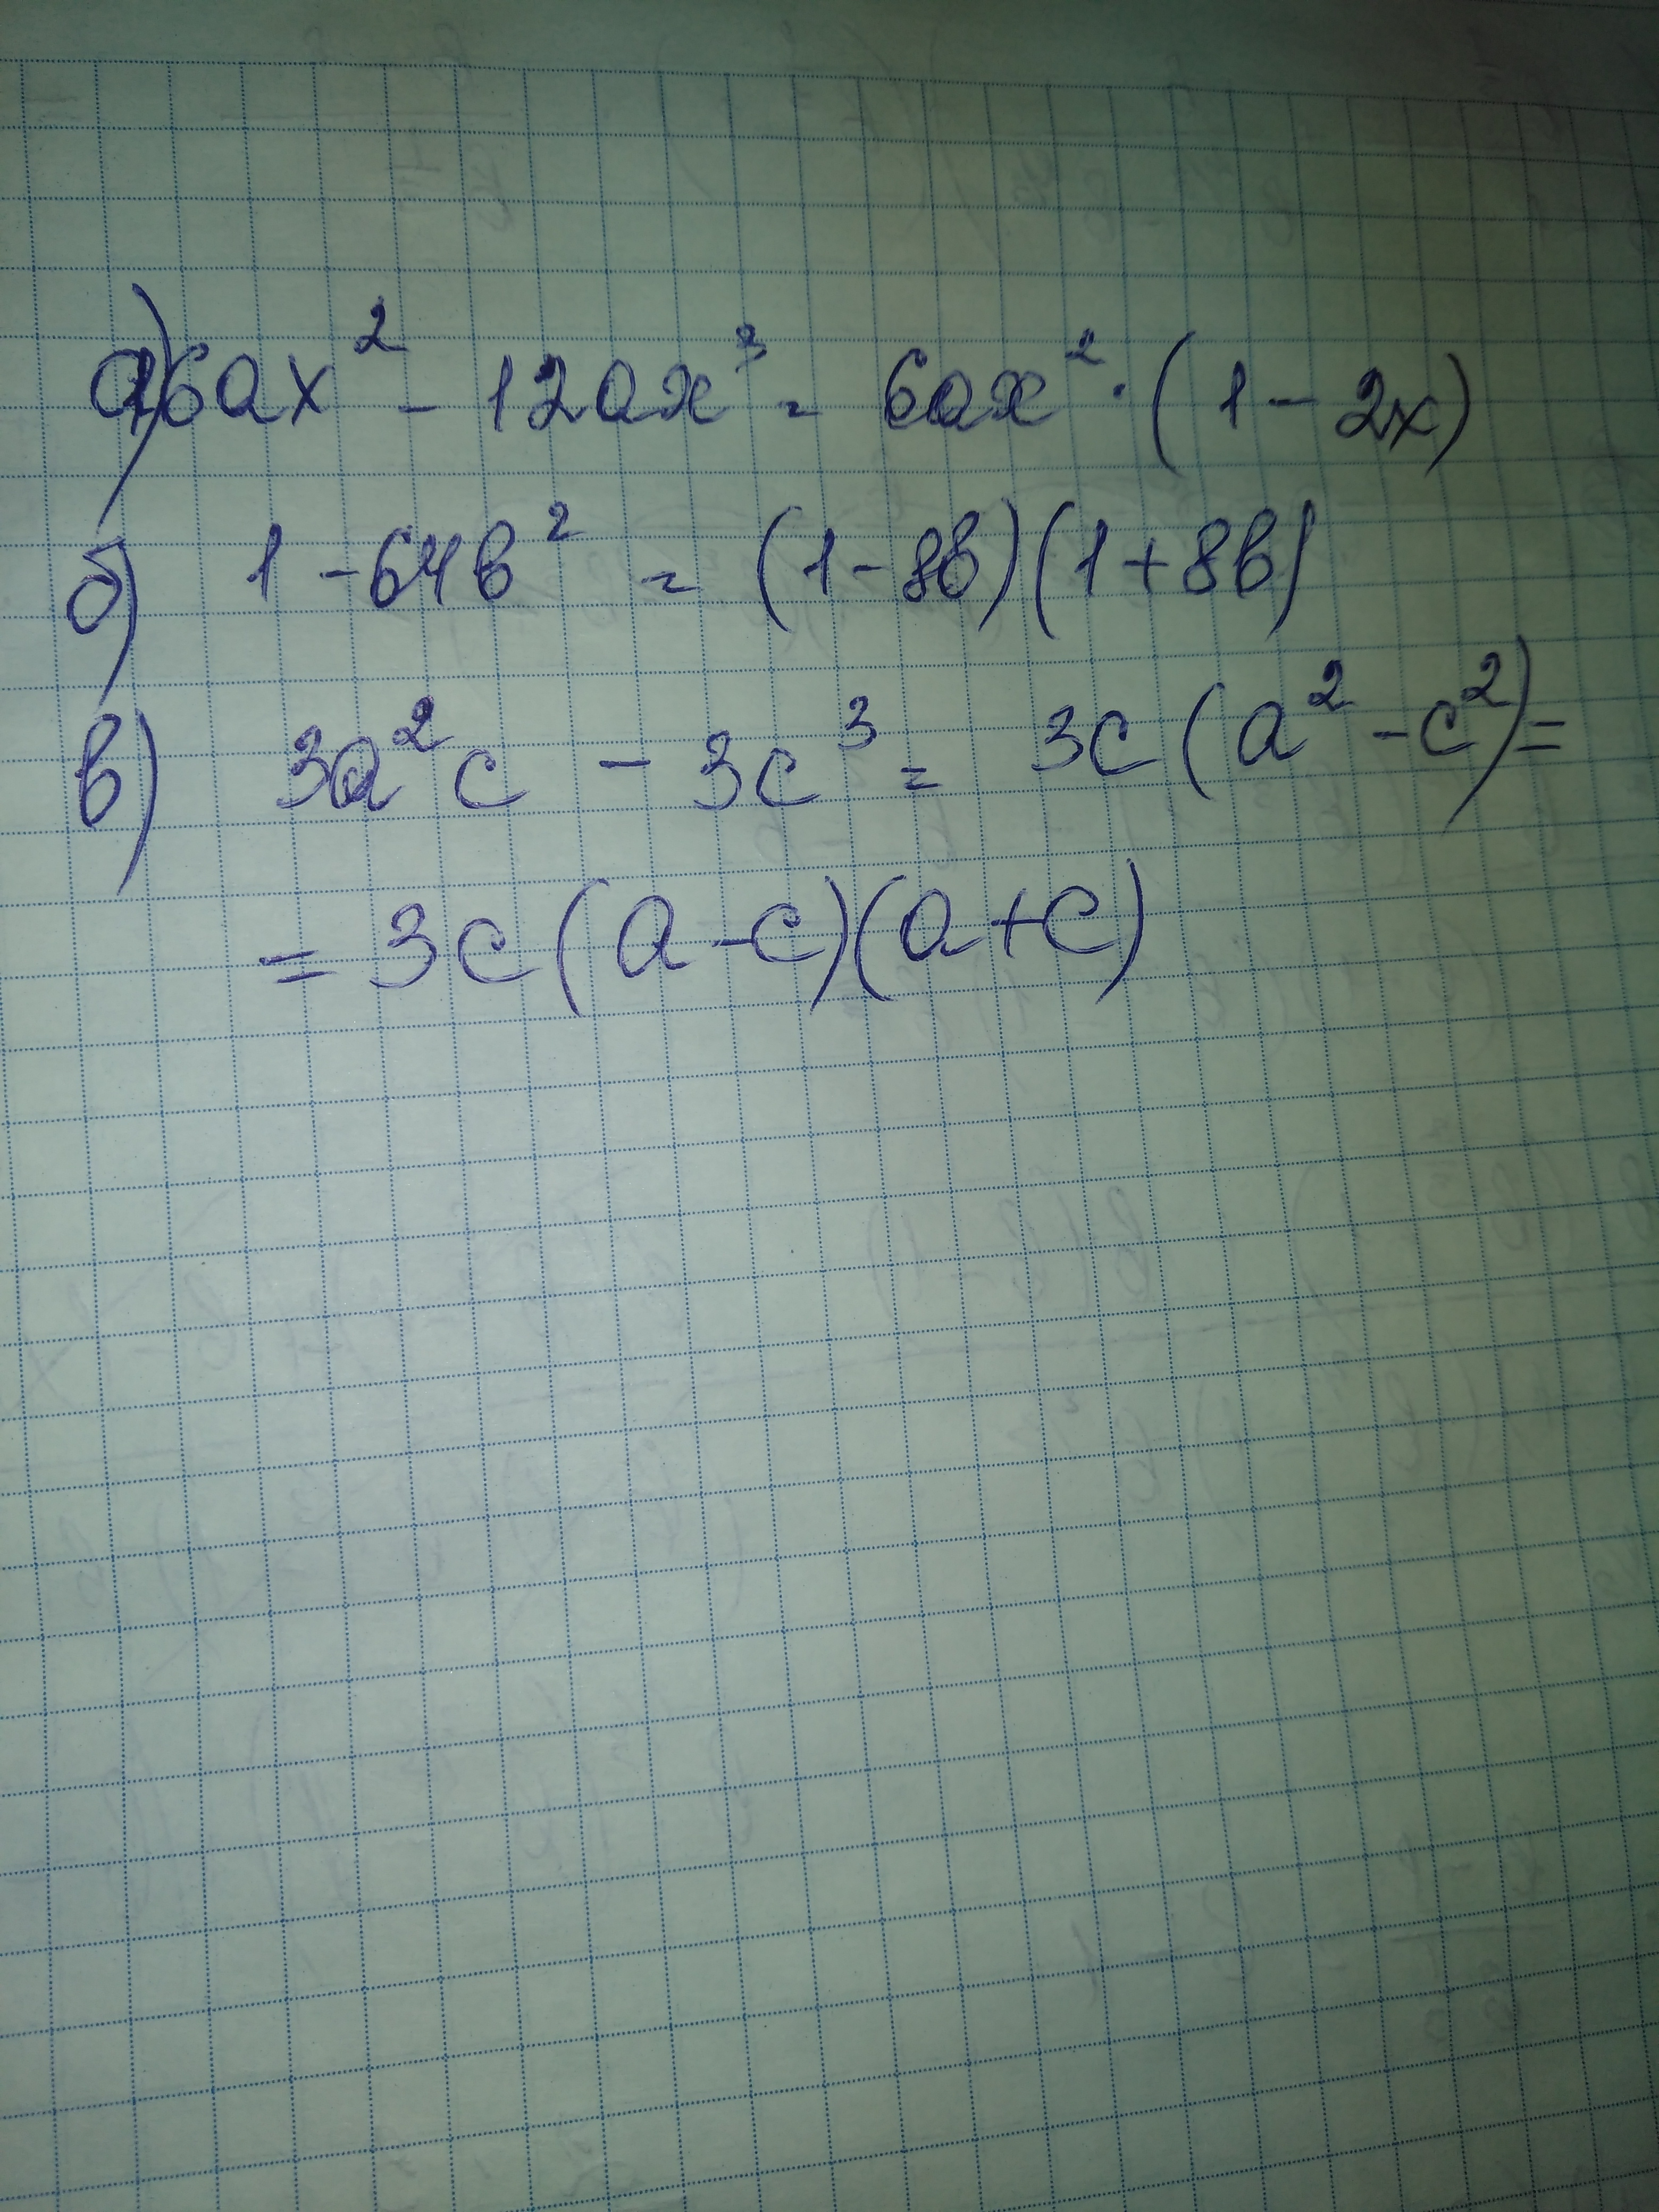 а) 6ax² - 12ax³ = 6ax² · (1 - 2x)
б) 1 - 64b² = (1 - 8b)(1 + 8b)
в) 3a²c - 3c³ = 3c(a² - c²) =
= 3c(a - c)(a + c)